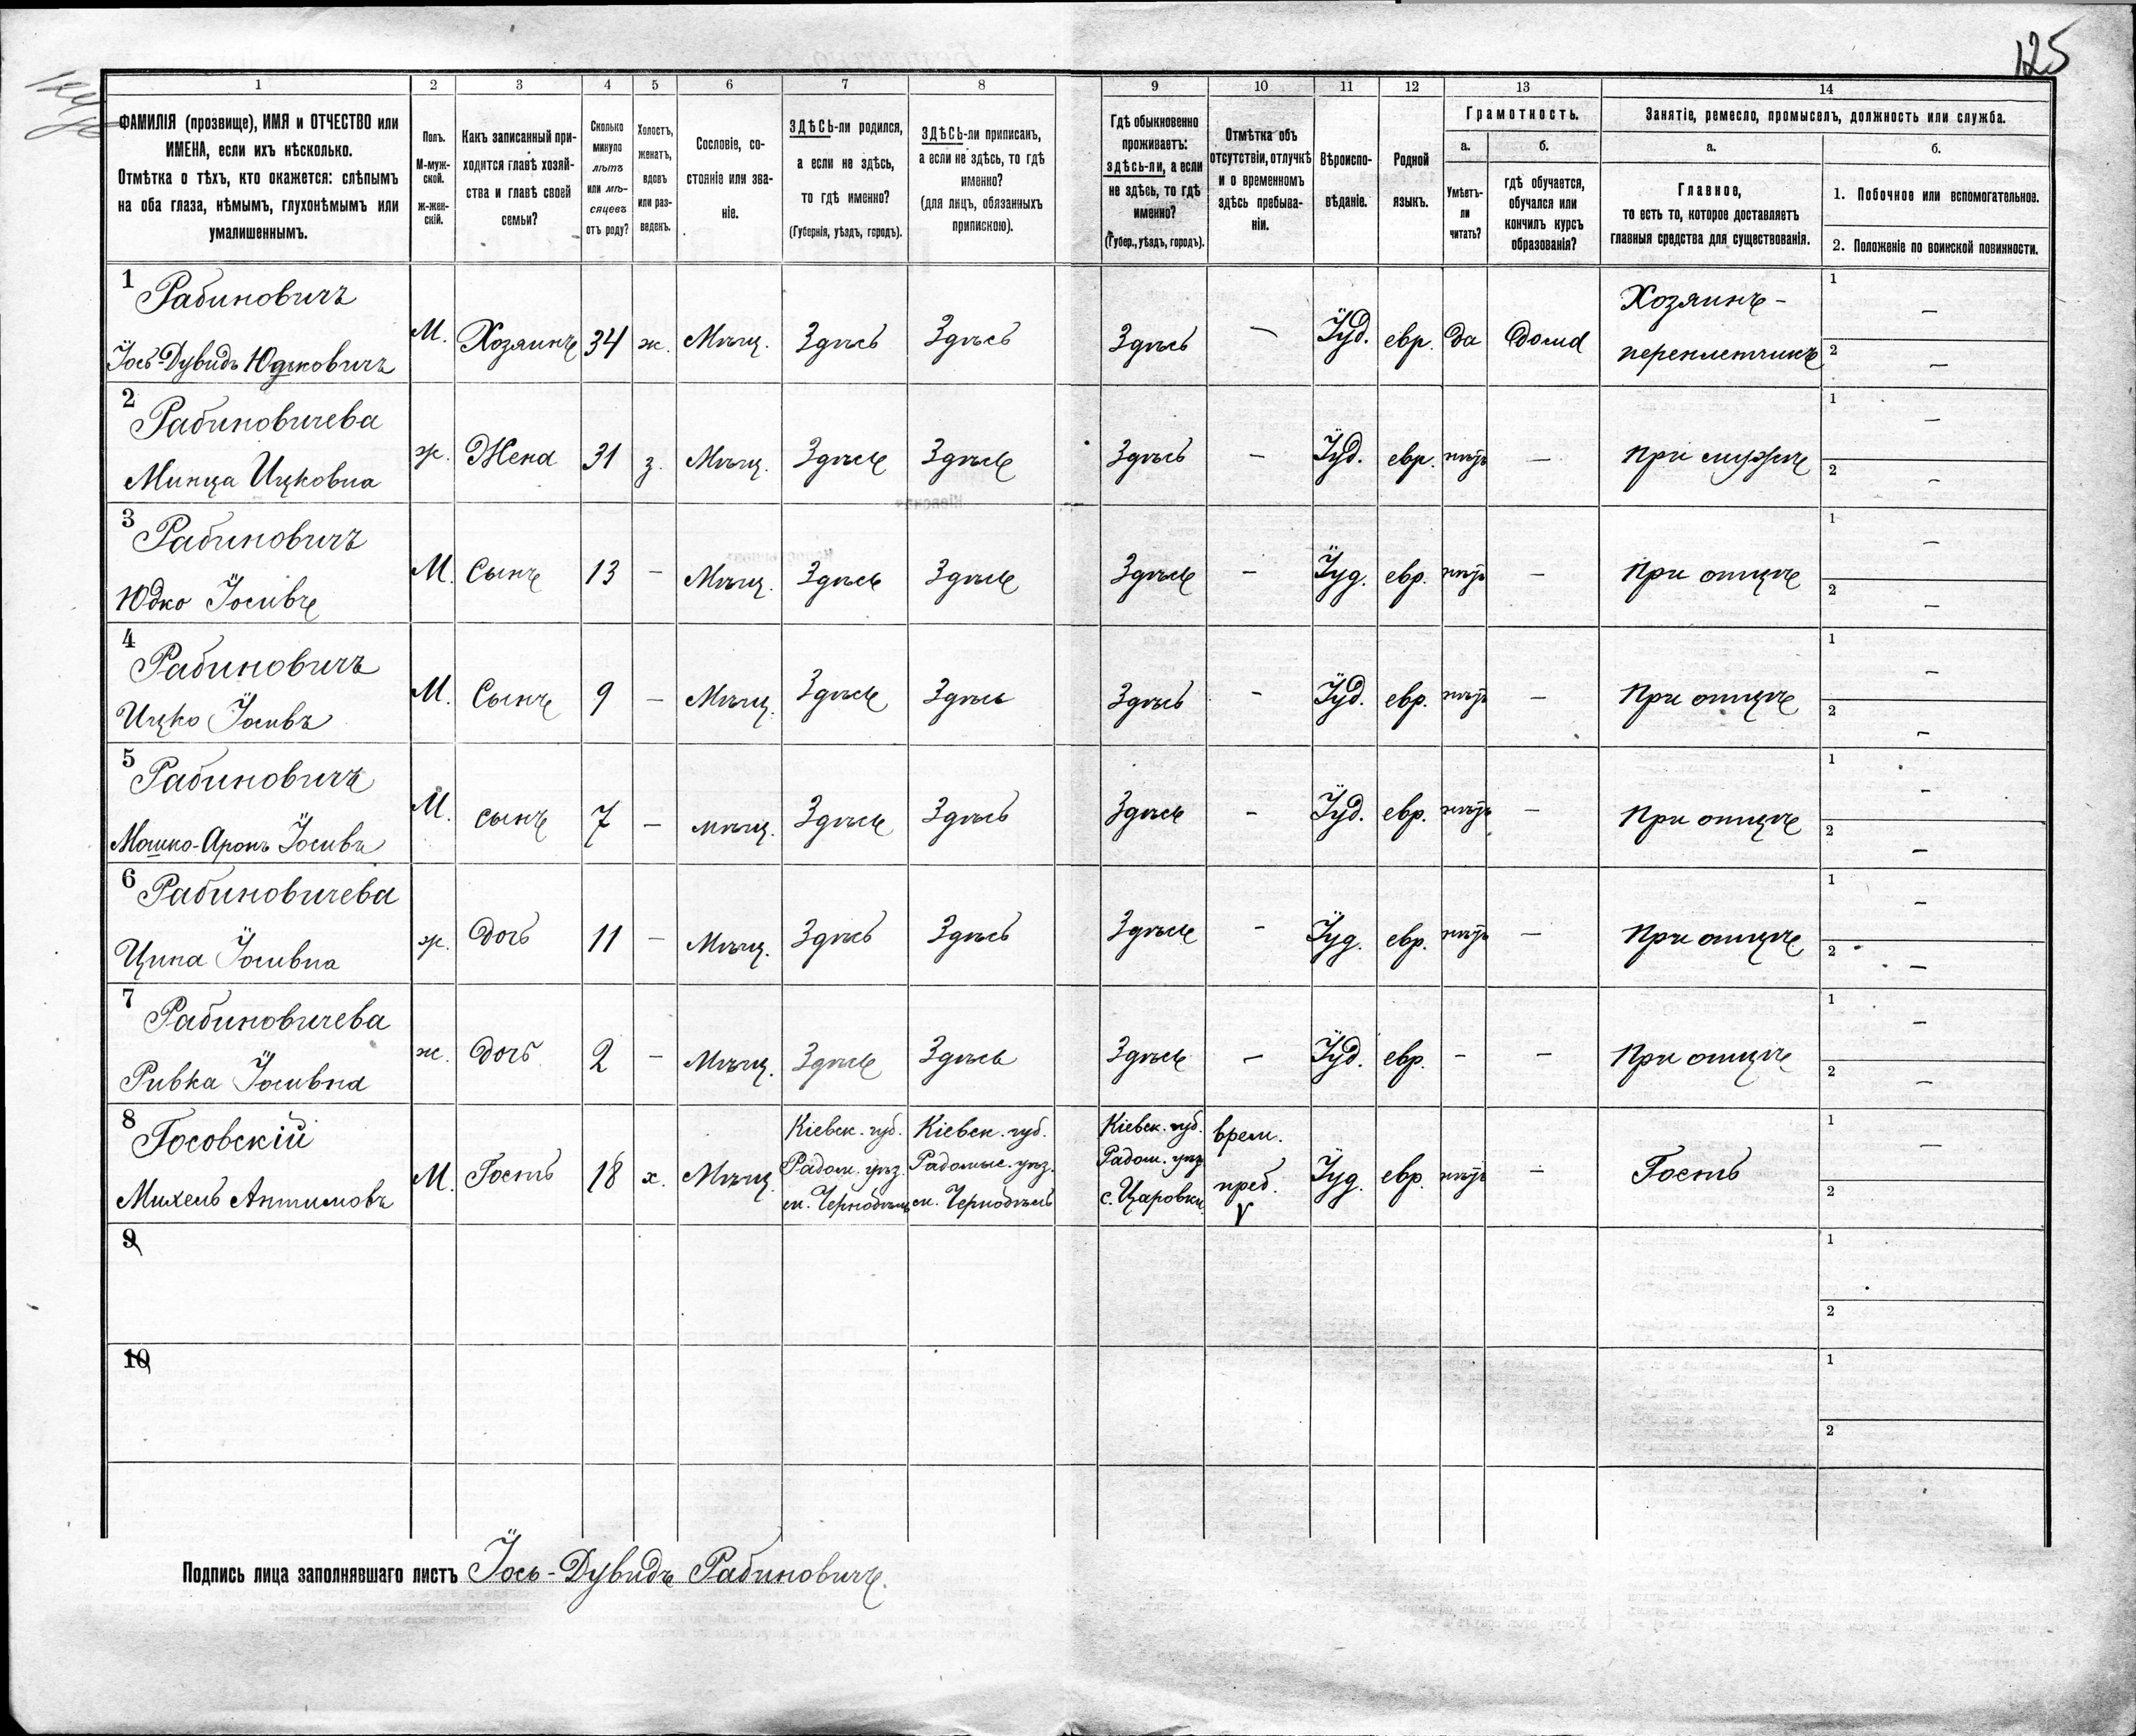 125
1 2 3 4 5 6 7 8 9 10 11 12 13 14
ФАМИЛІЯ (прозвище), ИМЯ и ОТЧЕСТВО или
ИМЕНА, если ихъ нѣсколько.
Отмѣтка о тѣхъ, кто окажется: слѣпымъ
на оба глаза, нѣмымъ, глухонѣмымъ или
умалишеннымъ.
Полъ.
М-муж-
ской.
ж-жен-
скій.
Какъ записанный при-
ходится главѣ хозяй-
ства и главѣ своей
семьи?
Сколько
минуло
лѣтъ
или мѣ-
сяцевъ
отъ роду?
Холостъ,
женатъ,
вдовъ
или раз-
веденъ.
Сословіе, со-
стояніе или зва-
ніе.
ЗДѢСЬ-ли родился,
а если не здѣсь,
то гдѣ именно?
(Губернія, уѣздъ, городъ).
ЗДѢСЬ-ли приписанъ,
а если не здѣсь, то гдѣ
именно?
(для лицъ, обязанныхъ
припискою).
Гдѣ обыкновенно
проживаетъ:
здѣсь-ли, а если
не здѣсь, то гдѣ
именно?
(Губер., уѣздъ, городъ).
Отмѣтка объ
отсутствіи, отлучкѣ
и о временномъ
здѣсь пребыва-
ніи.
Вѣроиспо-
вѣданіе.
Родной
языкъ.
Грамотность.
а.
Умѣетъ-
ли
читать?
б.
гдѣ обучается,
обучался или
кончилъ курсъ
образованія?
Занятіе, ремесло, промыселъ, должность или служба.
а.
Главное,
то есть то, которое доставляетъ
главныя средства для существованія.
б.
1. Побочное или вспомогательное.
2. Положеніе по воинской повинности.
1 Рабиновичъ
Іось-Дувидъ Юдковичъ М. Хозяинъ 34 ж. Мѣщ. Здѣсь Здѣсь Здѣсь — Іуд. евр. да дома Хозяинъ - 1 —
переплетчикъ 2 —
2 Рабиновичева
Минца Ицковна ж. Жена 31 з. Мѣщ. Здѣсь Здѣсь Здѣсь — Іуд. евр. нѣтъ — При мужѣ 1 —
2 —
3 Рабиновичъ
Юдко Іосивъ М. Сынъ 13 — Мѣщ. Здѣсь Здѣсь Здѣсь — Іуд. евр. нѣтъ — При отцѣ 1 —
2 —
4 Рабиновичъ
Ицко Іосивъ М. Сынъ 9 — Мѣщ. Здѣсь Здѣсь Здѣсь — Іуд. евр. нѣтъ — При отцѣ 1 —
2 —
5 Рабиновичъ
Мошко-Аронъ Іосивъ М. сынъ 7 — мѣщ. Здѣсь Здѣсь Здѣсь — Іуд. евр. нѣтъ — При отцѣ 1 —
2 —
6 Рабиновичева
Ципа Іосивна ж. дочь 11 — Мѣщ. Здѣсь Здѣсь Здѣсь — Іуд. евр. нѣтъ — При отцѣ 1 —
2 —
7 Рабиновичева
Ривка Іосивна ж. дочь 2 — Мѣщ. Здѣсь Здѣсь Здѣсь — Іуд. евр. — — При отцѣ 1 —
2 —
8 Госовскій
Михель М. Гость 18 х. Мѣщ. Кіевск. губ. Радом. уѣз. м. Чернобыль Кіевск. губ. Радомыс. уѣз. м. Чернобыль Кіевск. губ. Радом. уѣз. с. врем. преб. V Іуд. евр. нѣтъ — Гость 1 —
2
9 1
2
10 1
2
Подпись лица заполнявшаго листъ Іось-Дувидъ Рабиновичъ.